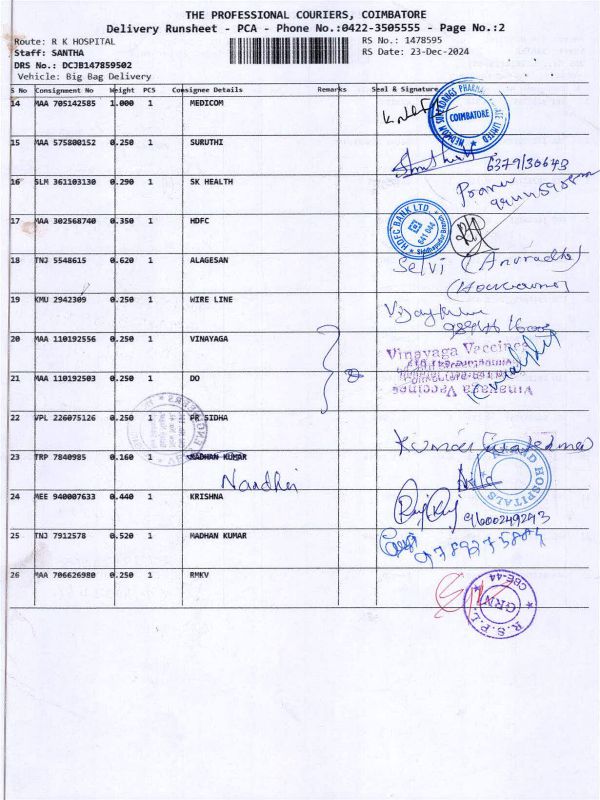 THE PROFESSIONAL COURIERS, COIMBATORE
Delivery Runsheet - PCA - Phone No.:0422-3505555 - Page No.:2
Route: R K HOSPITAL RS No.: 1478595
Staff: SANTHA RS Date: 23-Dec-2024
DRS No.: DCJB147859502
Vehicle: Big Bag Delivery
S No Consignment No Weight PCS Consignee Details Remarks Seal & Signature
14 MAA 705142585 1.000 1 MEDICOM
COIMBATORE
15 MAA 575800152 0.250 1 SURUTHI
16 SLM 361103130 0.290 1 SK HEALTH
17 MAA 302568740 0.350 1 HDFC
HDFC BANK LTD. 641 044
18 TNJ 5548615 0.620 1 ALAGESAN
Selvi (Anuradha)
19 KMU 2942309 0.250 1 WIRE LINE
20 MAA 110192556 0.250 1 VINAYAGA
Vinayaga Vaccines
21 MAA 110192503 0.250 1 DO
Vinayaga Vaccines
22 VPL 226075126 0.250 1 PR SIDHA
23 TRP 7840985 0.160 1 MADHAN KUMAR
HOSPITALS
24 MEE 940007633 0.440 1 KRISHNA
9600249293
25 TNJ 7912578 0.520 1 MADHAN KUMAR
26 MAA 706626980 0.250 1 RMKV
CBE-44
GRN
R.S.P.L